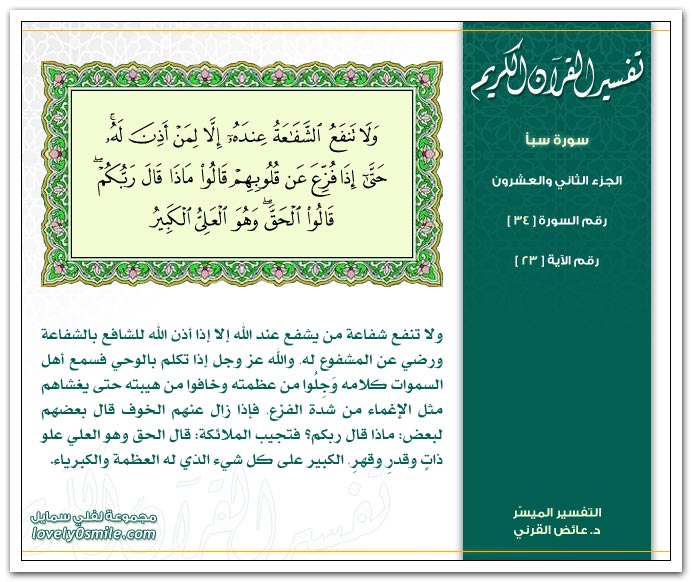 تفسير القرآن الكريم
سورة سبأ
الجزء الثاني والعشرون
رقم السورة [ ٣٤ ]
رقم الآية [ ٢٣ ]
وَلَا تَنفَعُ ٱلشَّفَٰعَةُ عِندَهُۥٓ إِلَّا لِمَنۡ أَذِنَ لَهُۥۚ
حَتَّىٰٓ إِذَا فُزِّعَ عَن قُلُوبِهِمۡ قَالُواْ مَاذَا قَالَ رَبُّكُمۡۖ
قَالُواْ ٱلۡحَقَّۖ وَهُوَ ٱلۡعَلِيُّ ٱلۡكَبِيرُ
ولا تنفع شفاعة من يشفع عند الله إلا إذا أذن الله للشافع بالشفاعة
ورضي عن المشفوع له. والله عز وجل إذا تكلم بالوحي فسمع أهل
السموات كلامه وَجِلُوا من عظمته وخافوا من هيبته حتى يغشاهم
مثل الإغماء من شدة الفزع. فإذا زال عنهم الخوف قال بعضهم
لبعض: ماذا قال ربكم؟ فتجيب الملائكة: قال الحق وهو العلي علو
ذاتٍ وقدرٍ وقهرٍ. الكبير على كل شيء الذي له العظمة والكبرياء.
تفسير القرآن الكريم
مجموعة لفلي سمايل
lovely0smile.com
التفسير الميسّر
د. عائض القرني